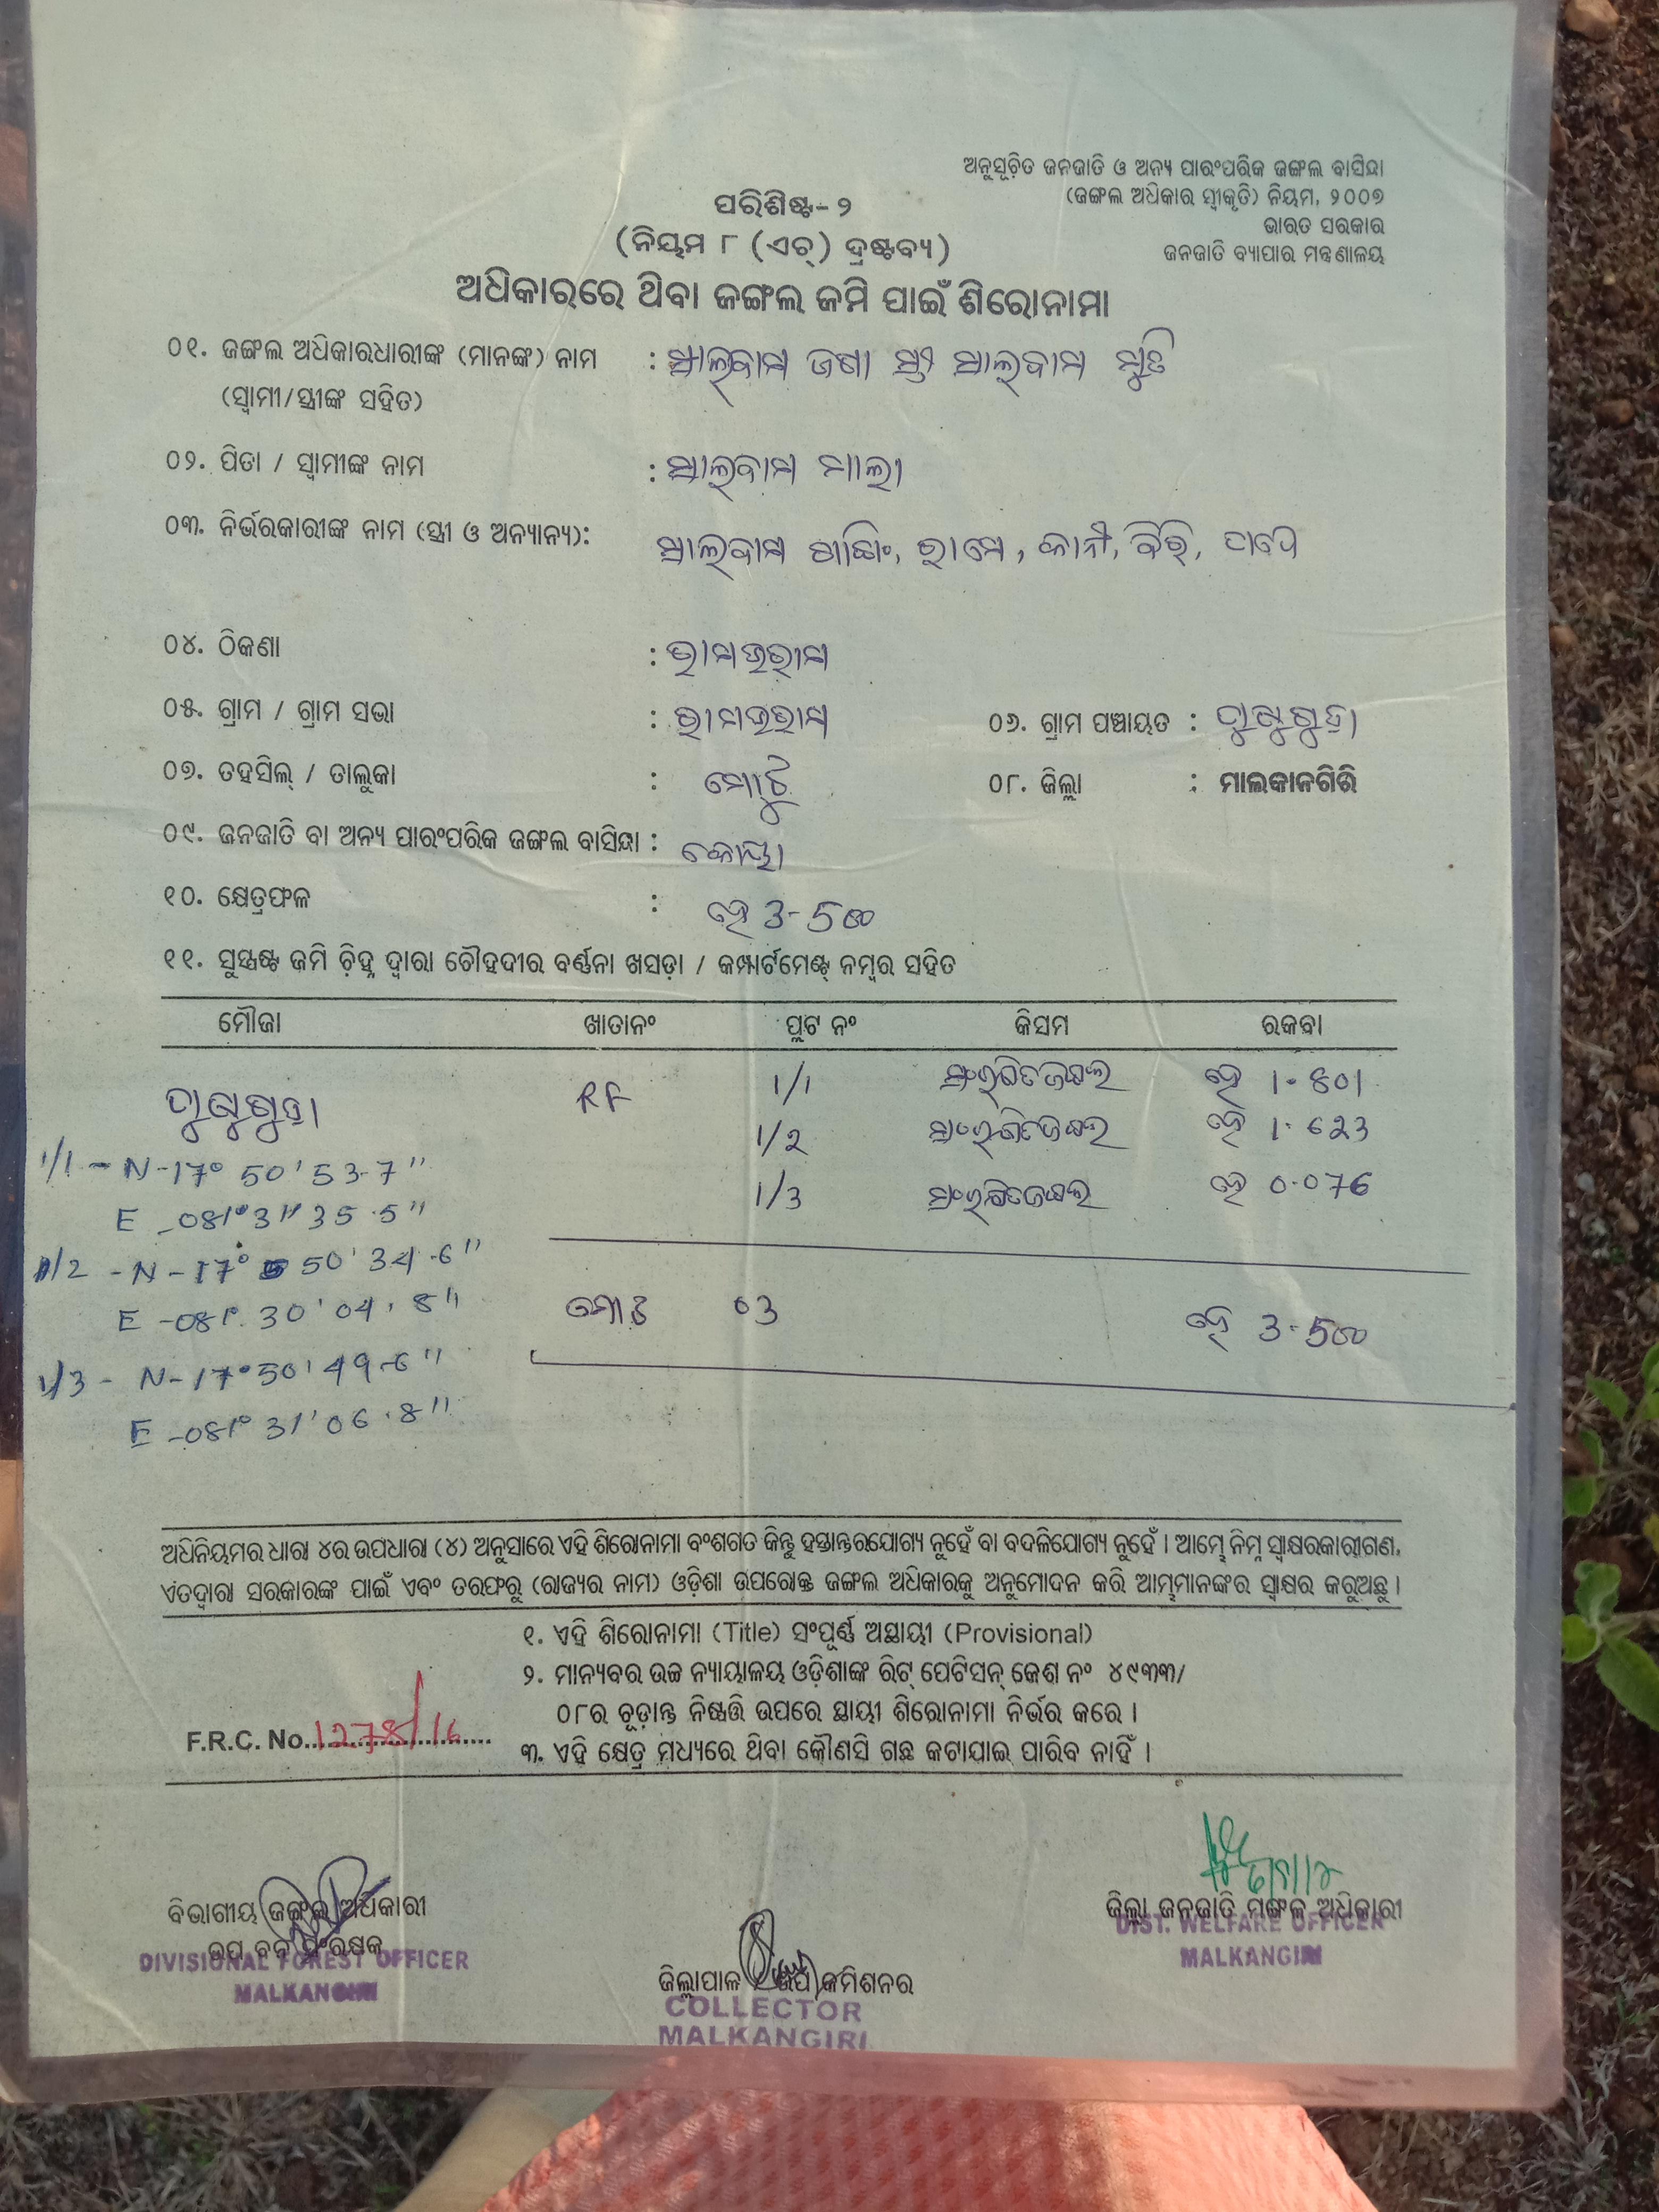 ଅନୁସୂଚିତ ଜନଜାତି ଓ ଅନ୍ୟ ପାରଂପରିକ ଜଙ୍ଗଲ ବାସିନ୍ଦା
(ଜଙ୍ଗଲ ଅଧିକାର ସ୍ୱୀକୃତି) ନିୟମ, ୨୦୦୭
ଭାରତ ସରକାର
ଜନଜାତି ବ୍ୟାପାର ମନ୍ତ୍ରଣାଳୟ
ପରିଶିଷ୍ଟ- ୨
(ନିୟମ ୮ (ଏଚ୍) ଦ୍ରଷ୍ଟବ୍ୟ)
ଅଧିକାରରେ ଥିବା ଜଙ୍ଗଲ ଜମି ପାଇଁ ଶିରୋନାମା
୦୧. ଜଙ୍ଗଲ ଅଧିକାରଧାରୀଙ୍କ (ମାନଙ୍କ) ନାମ :
(ସ୍ୱାମୀ/ସ୍ତ୍ରୀଙ୍କ ସହିତ)
୦୨. ପିତା / ସ୍ୱାମୀଙ୍କ ନାମ :
୦୩. ନିର୍ଭରକାରୀଙ୍କ ନାମ (ସ୍ତ୍ରୀ ଓ ଅନ୍ୟାନ୍ୟ):
୦୪. ଠିକଣା :
୦୫. ଗ୍ରାମ / ଗ୍ରାମ ସଭା : ୦୬. ଗ୍ରାମ ପଞ୍ଚାୟତ :
୦୭. ତହସିଲ୍ / ତାଲୁକା : ମୋଟୁ ୦୮. ଜିଲ୍ଲା : ମାଲକାନଗିରି
୦୯. ଜନଜାତି ବା ଅନ୍ୟ ପାରଂପରିକ ଜଙ୍ଗଲ ବାସିନ୍ଦା : କୋୟା
୧୦. କ୍ଷେତ୍ରଫଳ : ହେ 3-500
୧୧. ସୁସ୍ପଷ୍ଟ ଜମି ଚିହ୍ନ ଦ୍ୱାରା ଚୌହଦୀର ବର୍ଣ୍ଣନା ଖସଡ଼ା / କମ୍ପାର୍ଟମେଣ୍ଟ୍ ନମ୍ବର ସହିତ
ମୌଜା ଖାତାନଂ ପ୍ଲଟ ନଂ କିସମ ରକବା
RF 1/1 ସଂରକ୍ଷିତଜଙ୍ଗଲ ହେ 1.801
1/2 ସଂରକ୍ଷିତଜଙ୍ଗଲ ହେ 1.623
1/3 ସଂରକ୍ଷିତଜଙ୍ଗଲ ହେ 0.076
1/1 - N-17° 50' 53.7"
E -081° 31' 35.5"
1/2 - N-17° 50' 34.6"
E -081° 30' 04.8"
1/3 - N-17° 50' 49.6"
E -081° 31' 06.8"
ମୋଟ 03 ହେ 3.500
ଅଧିନିୟମର ଧାରା ୪ର ଉପଧାରା (୪) ଅନୁସାରେ ଏହି ଶିରୋନାମା ବଂଶଗତ କିନ୍ତୁ ହସ୍ତାନ୍ତରଯୋଗ୍ୟ ନୁହେଁ ବା ବଦଳିଯୋଗ୍ୟ ନୁହେଁ । ଆମ୍ଭେ ନିମ୍ନ ସ୍ୱାକ୍ଷରକାରୀଗଣ,
ଏତଦ୍ୱାରା ସରକାରଙ୍କ ପାଇଁ ଏବଂ ତରଫରୁ (ରାଜ୍ୟର ନାମ) ଓଡ଼ିଶା ଉପରୋକ୍ତ ଜଙ୍ଗଲ ଅଧିକାରକୁ ଅନୁମୋଦନ କରି ଆମ୍ଭମାନଙ୍କର ସ୍ୱାକ୍ଷର କରୁଅଛୁ ।
୧. ଏହି ଶିରୋନାମା (Title) ସଂପୂର୍ଣ୍ଣ ଅସ୍ଥାୟୀ (Provisional)
୨. ମାନ୍ୟବର ଉଚ୍ଚ ନ୍ୟାୟାଳୟ ଓଡ଼ିଶାଙ୍କ ରିଟ୍ ପେଟିସନ୍ କେଶ ନଂ ୪୯୩୩/
୦୮ର ଚୂଡ଼ାନ୍ତ ନିଷ୍ପତ୍ତି ଉପରେ ସ୍ଥାୟୀ ଶିରୋନାମା ନିର୍ଭର କରେ ।
୩. ଏହି କ୍ଷେତ୍ର ମଧ୍ୟରେ ଥିବା କୌଣସି ଗଛ କଟାଯାଇ ପାରିବ ନାହିଁ ।
F.R.C. No. 1278/16
ବିଭାଗୀୟ ଜଙ୍ଗଲ ଅଧିକାରୀ
ଉପ ବନ ସଂରକ୍ଷକ
DIVISIONAL FOREST OFFICER
MALKANGIRI
ଜିଲ୍ଲାପାଳ / ଉପ କମିଶନର
COLLECTOR
MALKANGIRI
ଜିଲ୍ଲା ଜନଜାତି ମଙ୍ଗଳ ଅଧିକାରୀ
DIST. WELFARE OFFICER
MALKANGIRI